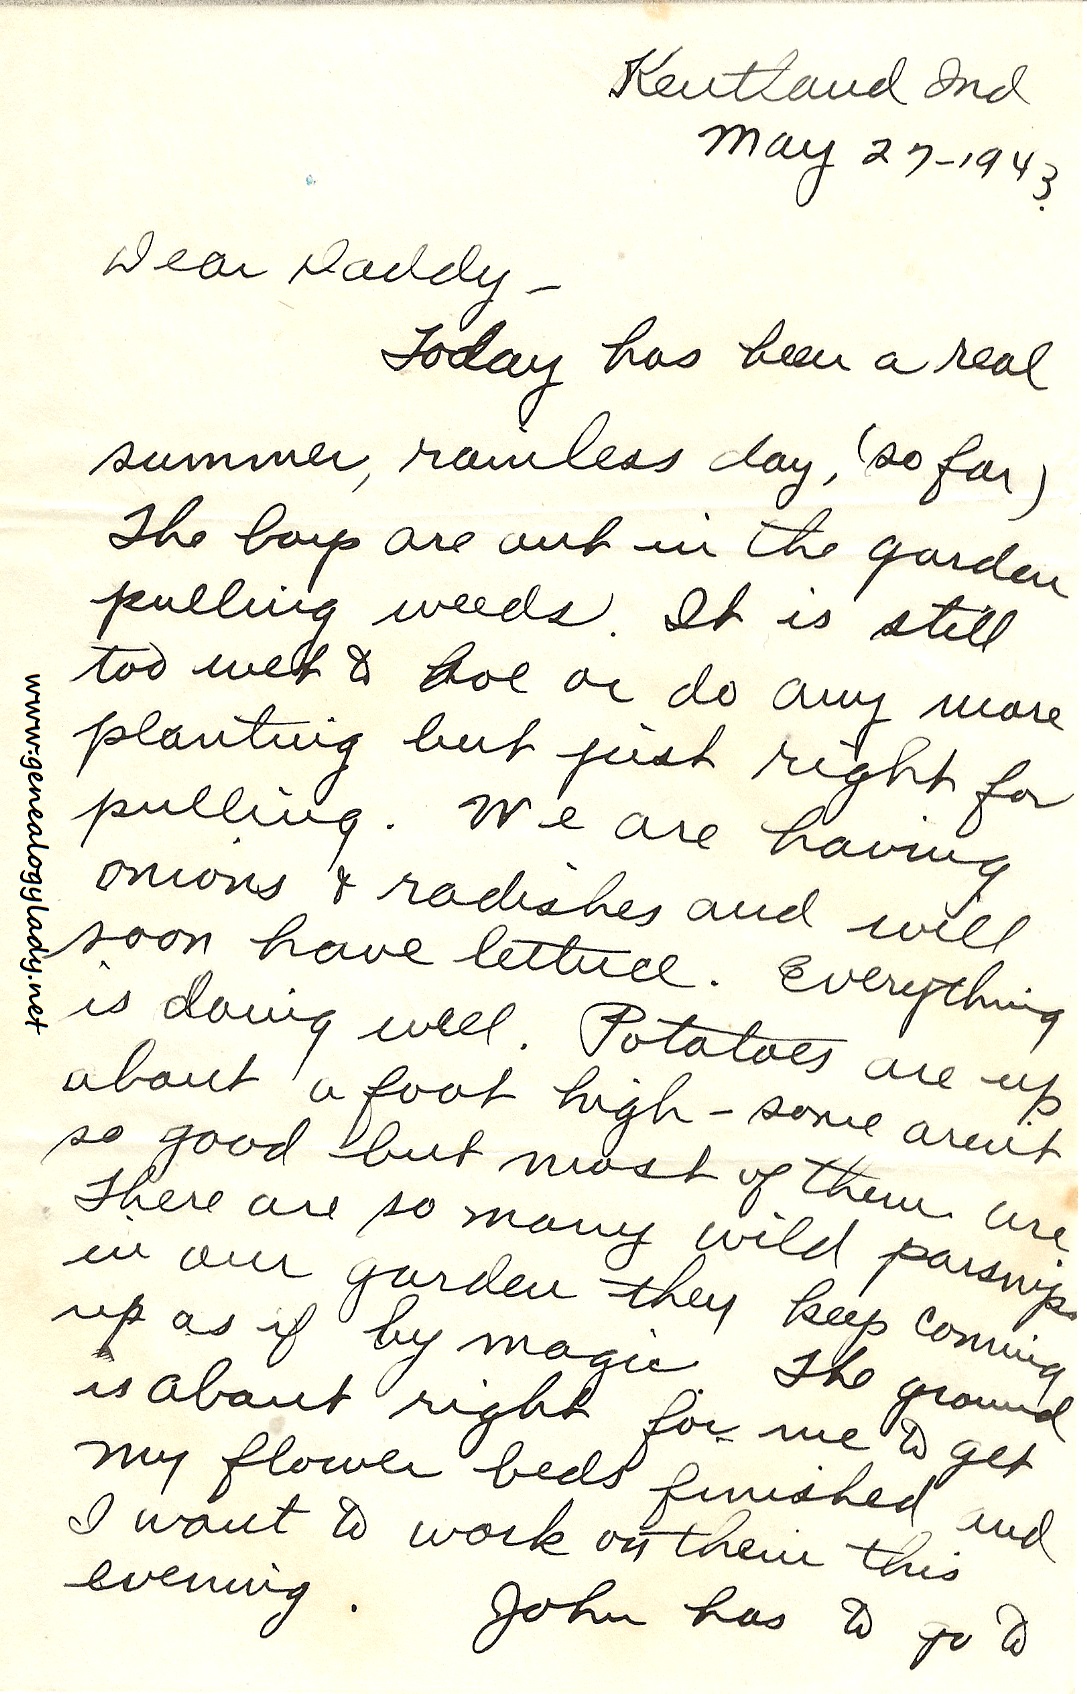 Kentland Ind
May 27-1943.
Dear Daddy –
Today has been a real
summer, rainless day, (so far)
The boys are out in the garden
pulling weeds. It is still
too wet to hoe or do any more
planting but just right for
pulling. We are having
onions & radishes and will
soon have lettuce. Everything
is doing well. Potatoes are up
about a foot high – some aren't
so good but most of them are.
There are so many wild parsnips
in our garden they keep coming
up as if by magic The ground
is about right for me to get
my flower beds finished and
I want to work on them this
evening. John has to go to
www.genealogylady.net